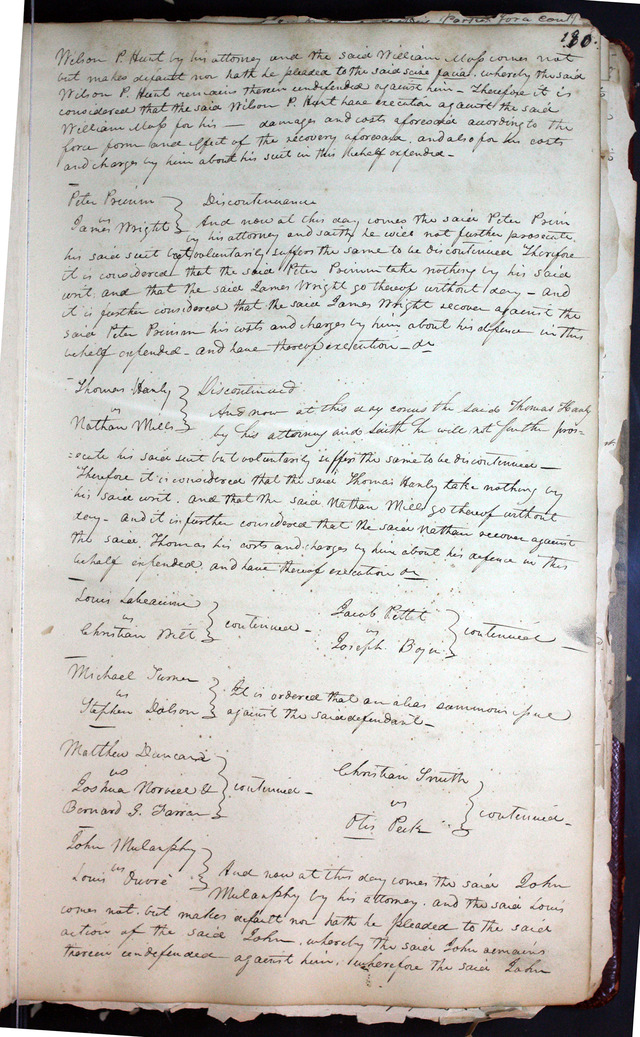 130.
Wilson P. Hunt by his attorney and the said William Moss comes not
but makes default nor hath he pleaded to the said scire facias, whereby the said
Wilson P. Hunt remains therein undefended against him – Therefore it is
considered that the said Wilson P. Hunt have execution against the said
William Moss for his — damages and costs aforesaid according to the
force form and effect of the recovery aforesaid, and also for his costs
and charges by him about his suit in this behalf expended –
Peter Primm
vs
James Wright
Discontinuance
And now at this day comes the said Peter Prim
by his attorney and saith he will not further prosecute
his said suit but voluntarily suffers the same to be discontinued Therefore
it is considered that the said Peter Primm take nothing by his said
writ, and that the said James Wright go thereof without day – and
it is further considered that the said James Wright recover against the
said Peter Primm his costs and charges by him about his defence in this
behalf expended – and have thereof execution – &c
Thomas Hanly
vs
Nathan Mills
Discontinued
And now at this day comes the said Thomas Hanly
by his attorney and saith he will not further pros=
=ecute his said suit but voluntarily suffers the same to be discontinued –
Therefore it is considered that the said Thomas Hanly take nothing by
his said writ, and that the said Nathan Mills go thereof without
day – and it is further considered that the said Nathan recover against
the said Thomas his costs and charges by him about his defence in this
behalf expended, and have thereof execution &c
Louis Labeaume
vs
Christian Witt
continued –
Jacob Pettit
vs
Joseph Boyer
continued –
Michael Turner
vs
Stephen Dolson
It is ordered that an alias summons issue
against the said defendant –
Matthew Duncan
vs
Joshua Norvell &
Bernard G. Farrar
continued –
Christian Smith
vs
Otis Peck
continued –
John Mulanphy
vs
Louis Duvre
And now at this day comes the said John
Mulanphy by his attorney, and the said Louis
comes not, but makes default nor hath he pleaded to the said
action of the said John, whereby the said John remains
therein undefended against him, wherefore the said John